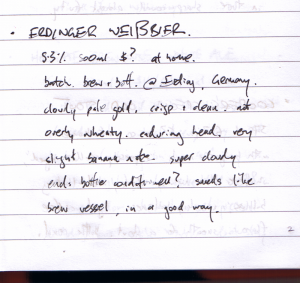 • ERDINGER WEIßBIER.
5.3% 500ml $? at home.
batch. brew + bott. @ Erding, Germany.
cloudy pale gold, crisp + clean. not
overly wheaty. enduring head. very
slight banana note. super cloudy
end: bottle well? smells like
brew vessel, in a good way.
2